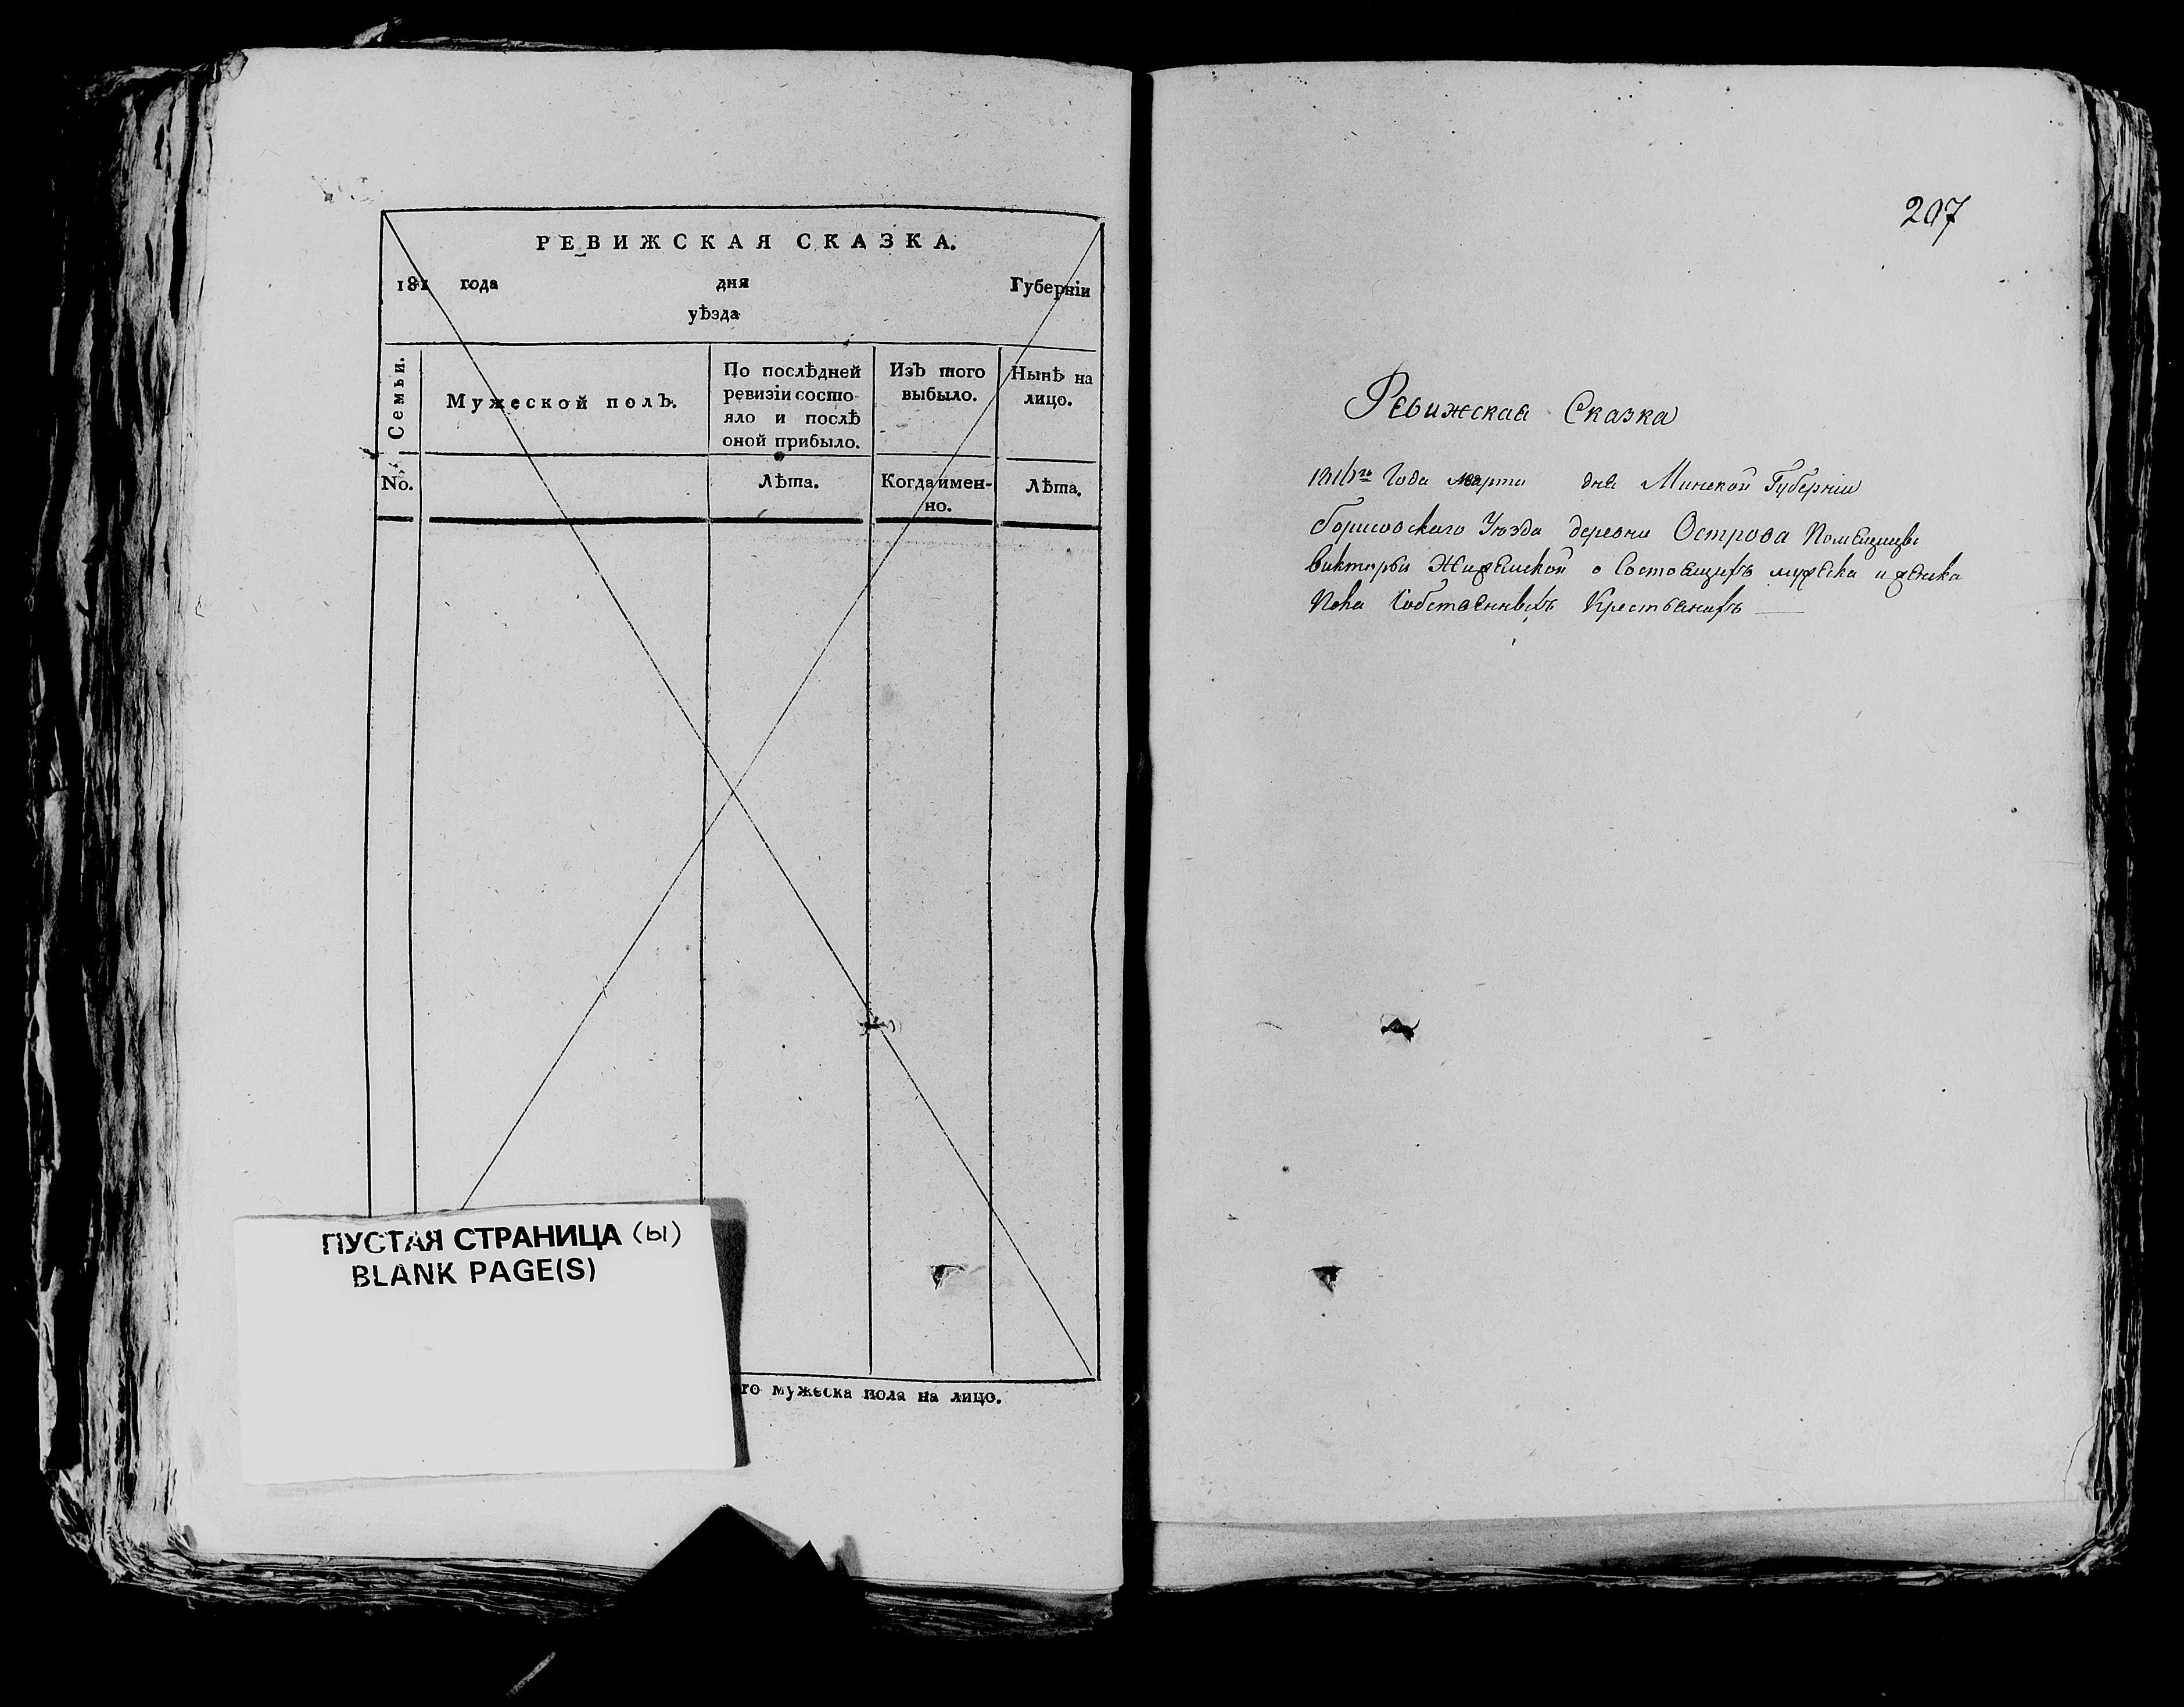 РЕВИЖСКАЯ СКАЗКА.
181 года дня Губернїи
уѣзда
Семьи.
Мужеской полъ.
По послѣдней
ревизїи состо-
яло и послѣ
оной прибыло.
Изъ того
выбыло.
Нынѣ на
лицо.
No.
Лѣта.
Когда имен-
но.
Лѣта.
ПУСТАЯ СТРАНИЦА (ы)
BLANK PAGE(S)
го мужеска пола на лицо.
207
Ревижская Сказка
1816го Года марта дня Минской Губернїи
Борисовского Уѣзда деревни Острова Помѣщицы
Викторыи о Состоящихъ мужеска и женска
Пола Собственныхъ Крестьянахъ